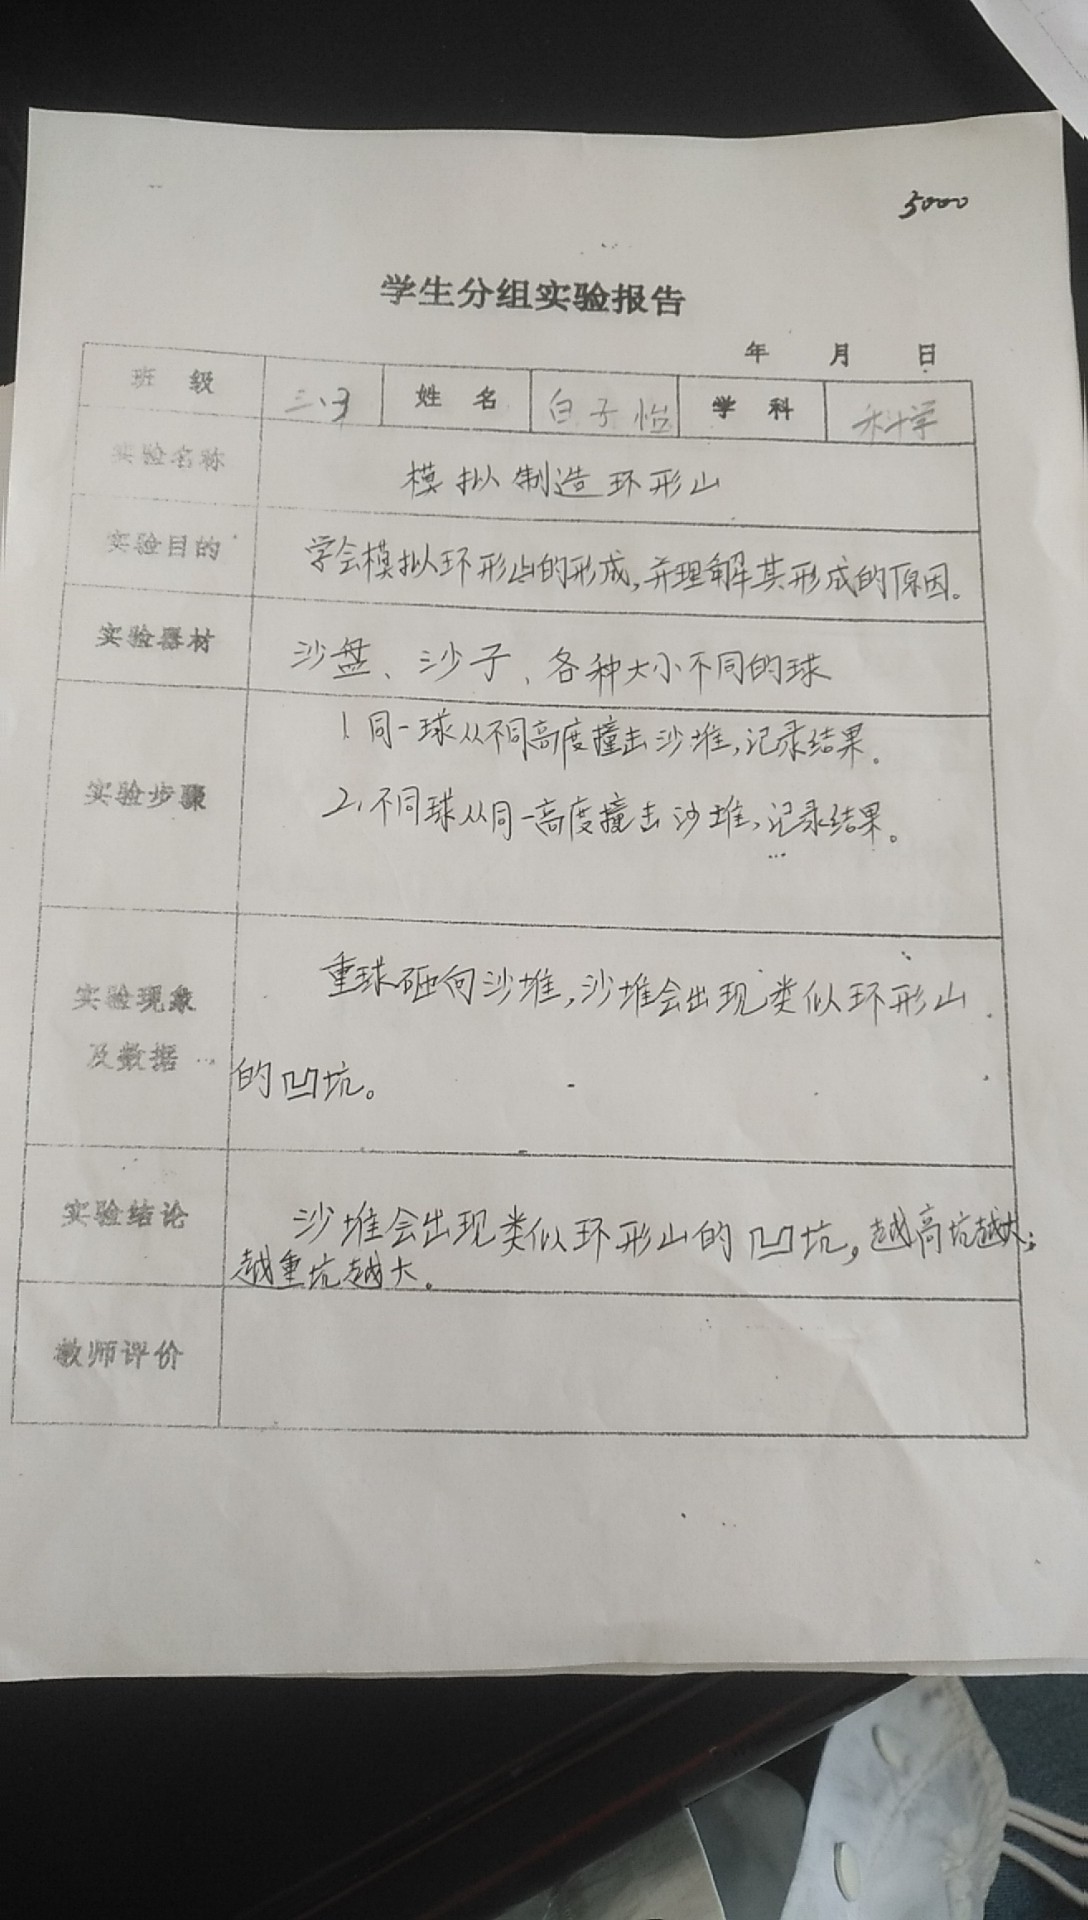 5000
学生分组实验报告
年 月 日
班 级 姓 名 白子怡 学 科 科学
实验名称 模拟制造环形山
实验目的 学会模拟环形山的形成,并理解其形成的原因。
实验器材 沙盘、沙子、各种大小不同的球
1.同一球从不同高度撞击沙堆,记录结果。
实验步骤
2.不同球从同一高度撞击沙堆,记录结果。
重球砸向沙堆,沙堆会出现类似环形山
实验现象
及数据
的凹坑。
实验结论 沙堆会出现类似环形山的凹坑,越高坑越大;
越重坑越大。
教师评价